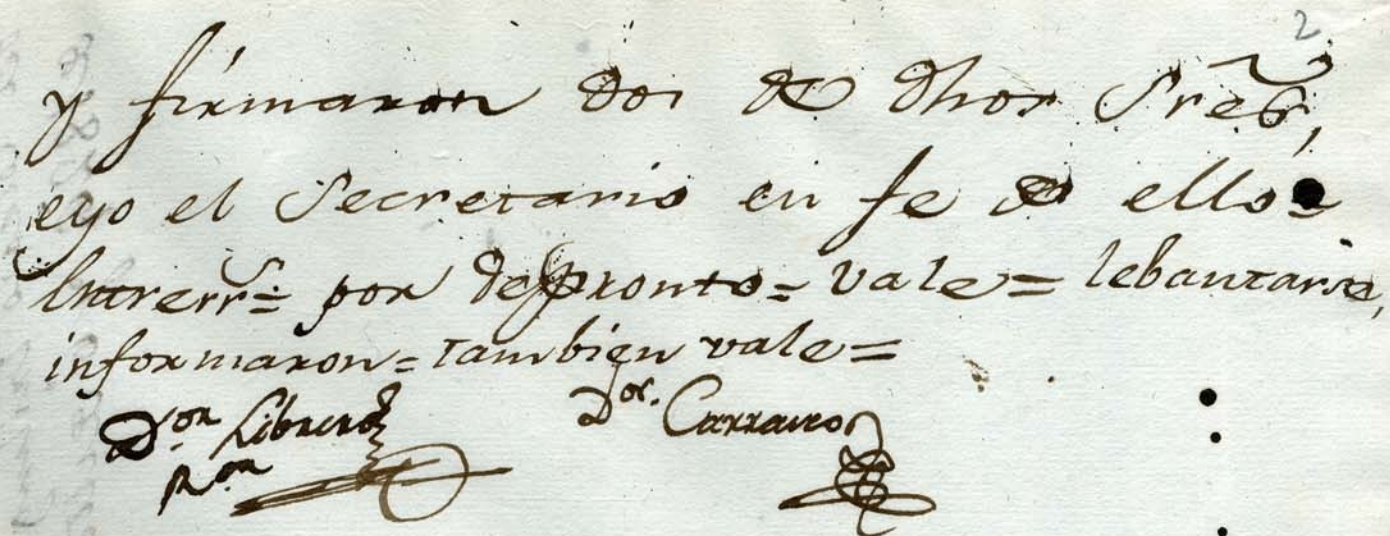 2
y firmaron dos de dhos Sres,
e yo el Secretario en fe de ello=
Entrerr.s= por depronto= vale= lebantarse,
informaron= tambien vale=
Dor. Librero Dor. Carrasco
Ror.